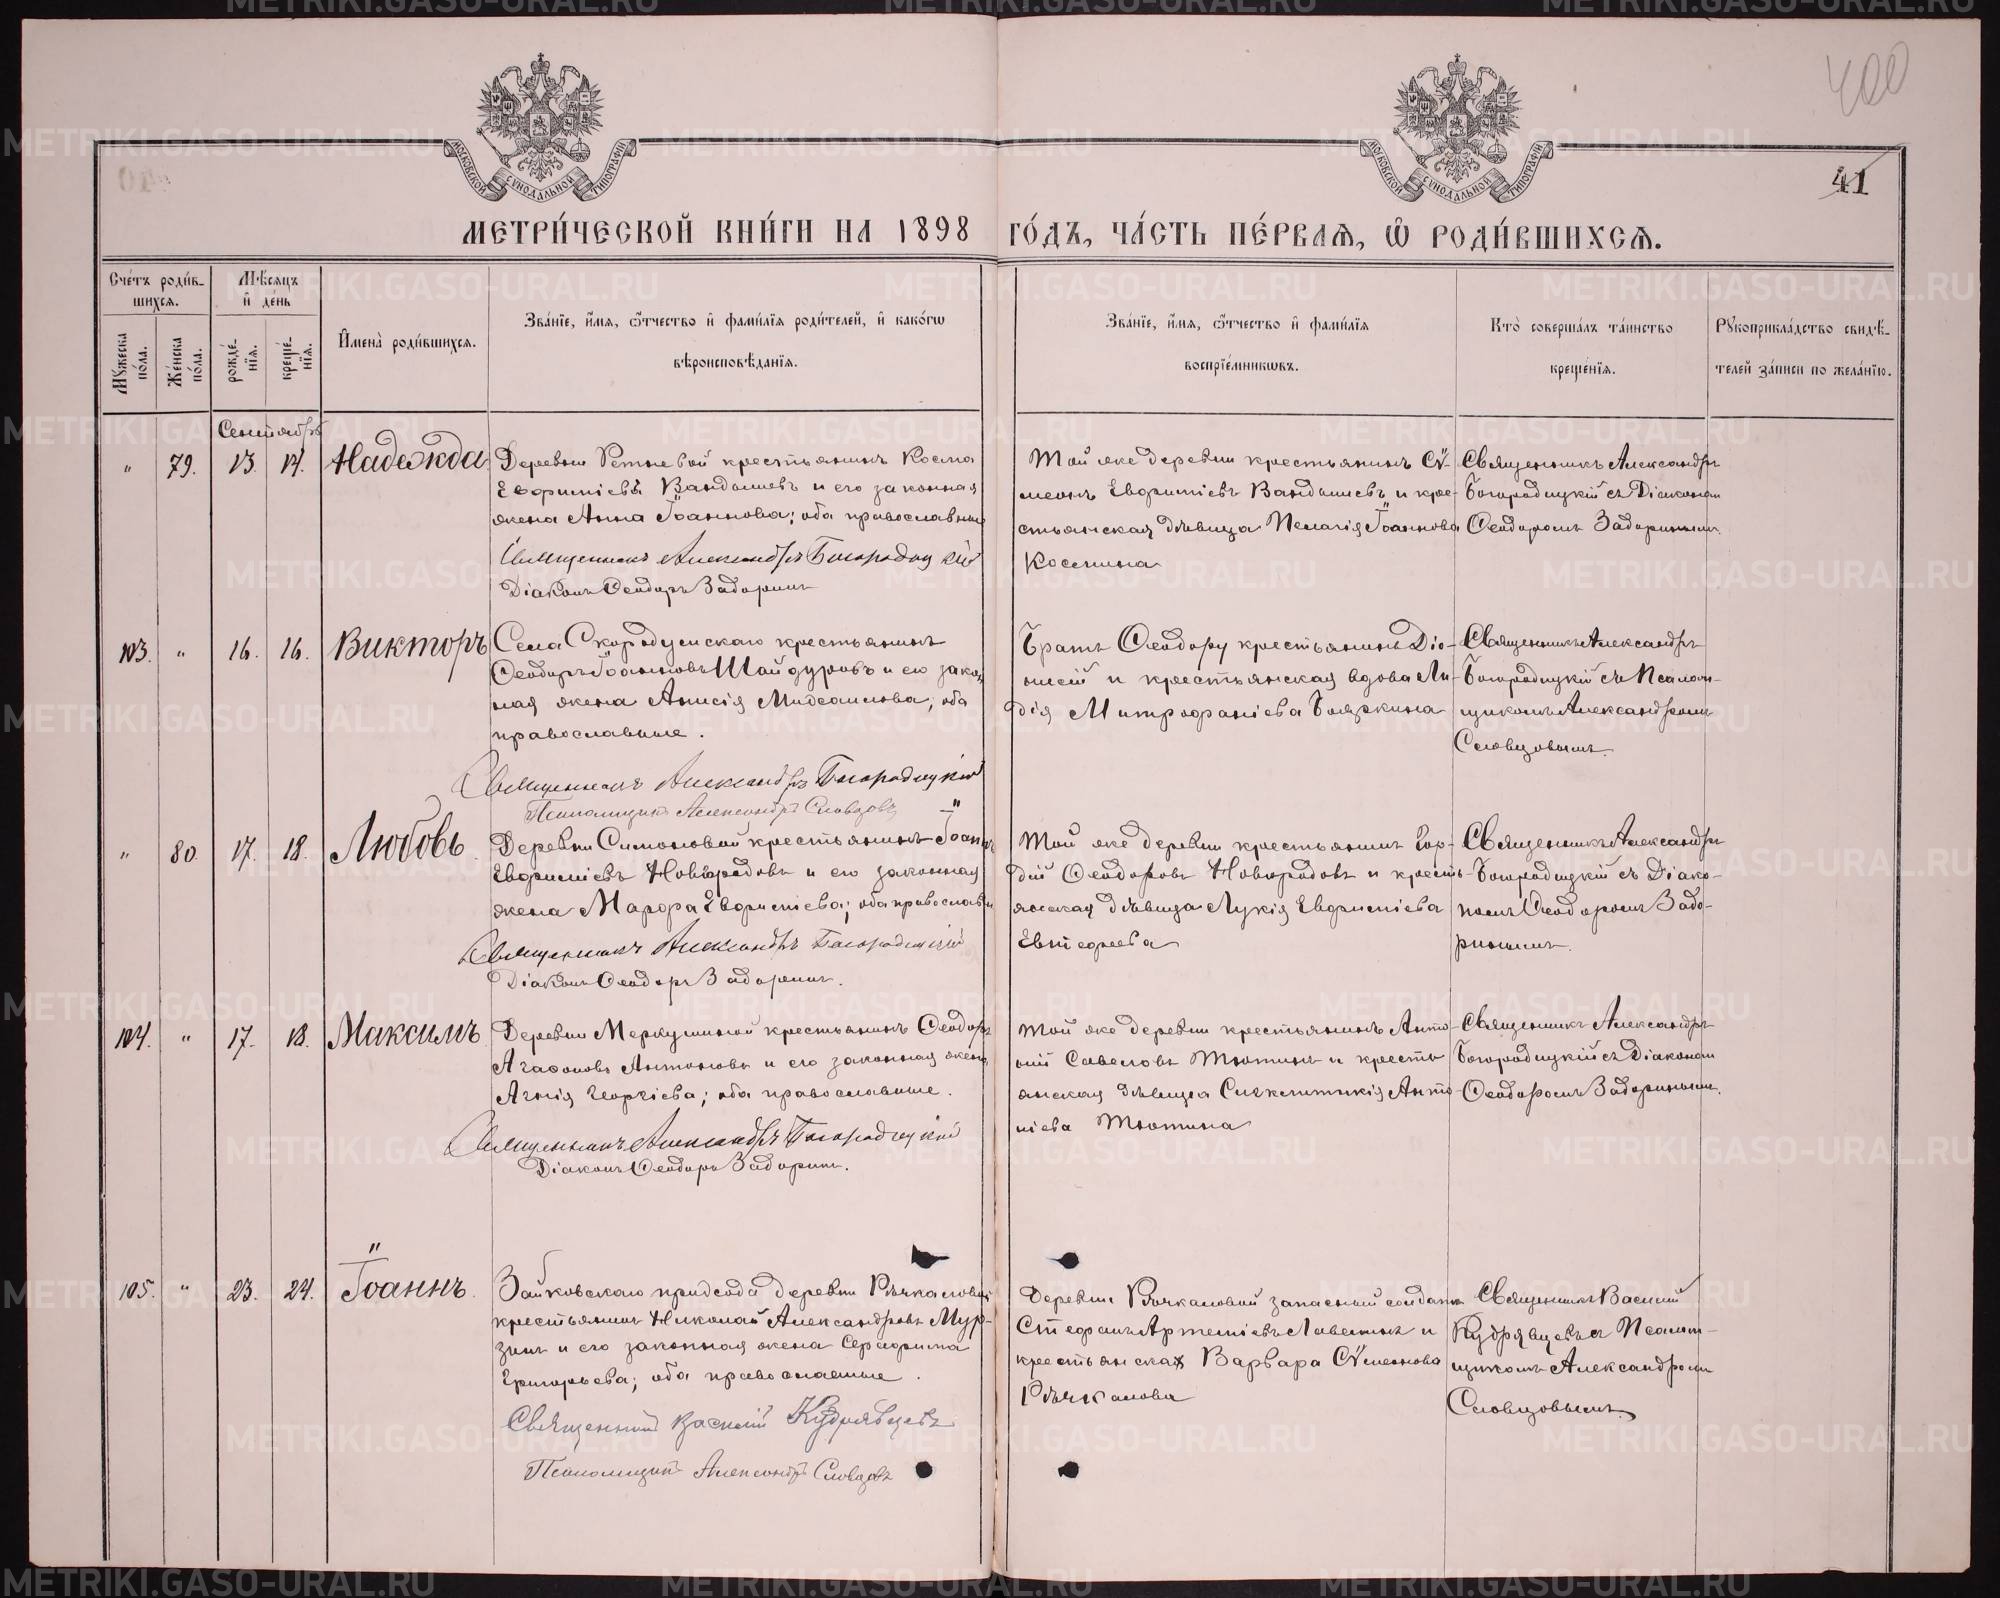 400
41
МОСКОВСКОЙ СѴНОДАЛЬНОЙ ТИПОГРАФІИ
МОСКОВСКОЙ СѴНОДАЛЬНОЙ ТИПОГРАФІИ
МЕТРИ́ЧЕСКОЙ КНИ́ГИ НА 1898 ГО́ДЪ, ЧА́СТЬ ПЕ́РВАЯ, Ѡ РОДИ́ВШИХСЯ.
Сче́тъ роди́в-
шихся.
Мѣ́сяцъ
и҆ де́нь
Мꙋ́жеска по́ла.
Же́нска по́ла.
рожде́-
нїя.
креще́-
нїя.
И҆мена̀ роди́вшихся.
Зва́нїе, и҆́мя, ѻ҆́тчество и҆ фами́лїя роди́телей, и҆ како́гѡ
вѣроисповѣ́данїя.
Зва́нїе, и҆́мя, ѻ҆́тчество и҆ фами́лїя
воспрїе́мникѡвъ.
Кто̀ соверша́лъ та́инство
креще́нїя.
Рꙋкоприкла́дство свидѣ́-
телей за́писи по жела́нїю.
Сентябрь
" 79. 13. 14. Надежда
Деревни Ретневой крестьянинъ Косма
Евфиміевъ Вандышевъ и его законная
жена Анна Іоаннова; оба православные
Священникъ Александръ Богородицкій
Діаконъ Ѳеодоръ Задоринъ
Той же деревни крестьянинъ Сѵ-
меонъ Евфиміевъ Вандышевъ и кре-
стьянская дѣвица Пелагія Іоаннова
Косьмина
Священникъ Александръ
Богородицкій съ Діакономъ
Ѳеодоромъ Задоринымъ.
103. " 16. 16. Викторъ
Села Скородумскаго крестьянинъ
Ѳеодоръ Іоанновъ Шайдуровъ и его закон-
ная жена Анисія Михаилова; оба
православные.
Священникъ Александръ Богородицкій
Псаломщикъ Александръ Словцовъ
Братъ Ѳеодору крестьянинъ Діо-
нисій и крестьянская вдова Ли-
дія Митрофаніева Бояркина
Священникъ Александръ
Богородицкій съ Псалом-
щикомъ Александромъ
Словцовымъ.
" 80. 17. 18. Любовь
Деревни Симоновой крестьянинъ Іоаннъ
Евфиміевъ Новгородовъ и его законная
жена Марфа Евфиміева; оба православн
Священникъ Александръ Богородицкій
Діаконъ Ѳеодоръ Задоринъ.
Той же деревни крестьянинъ Гор-
дій Ѳеодоровъ Новгородовъ и кресть-
янская дѣвица Лукія Евфиміева
Евтефеева
Священникъ Александръ
Богородицкій съ Діако-
номъ Ѳеодоромъ Задо-
ринымъ.
104. " 17. 18. Максимъ
Деревни Меркушиной крестьянинъ Ѳеодоръ
Агафоновъ Антоновъ и его законная жена
Агнія Георгіева; оба православные.
Священникъ Александръ Богородицкій
Діаконъ Ѳеодоръ Задоринъ.
Той же деревни крестьянинъ Анто-
ній Савеловъ Тютинъ и кресть
янская дѣвица Сигклитикія Анто
ніева Тютина
Священникъ Александръ
Богородицкій съ Діакономъ
Ѳеодоромъ Задоринымъ.
105. " 23. 24. Іоаннъ.
Зайковскаго прихода деревни Рѣчкаловой
крестьянинъ Николай Александровъ Мур-
зинъ и его законная жена Серафима
Григорьева; оба православные.
Священникъ Василій Кудрявцевъ
Псаломщикъ Александръ Словцовъ
Деревни Рѣчкаловой запасный солдатъ
Стефанъ Артеміевъ Лавелинъ и
крестьянская Варвара Сѵмеонова
Рѣчкалова
Священникъ Василій
Кудрявцевъ съ Псалом-
щикомъ Александромъ
Словцовымъ.
METRIKI.GASO-URAL.RU